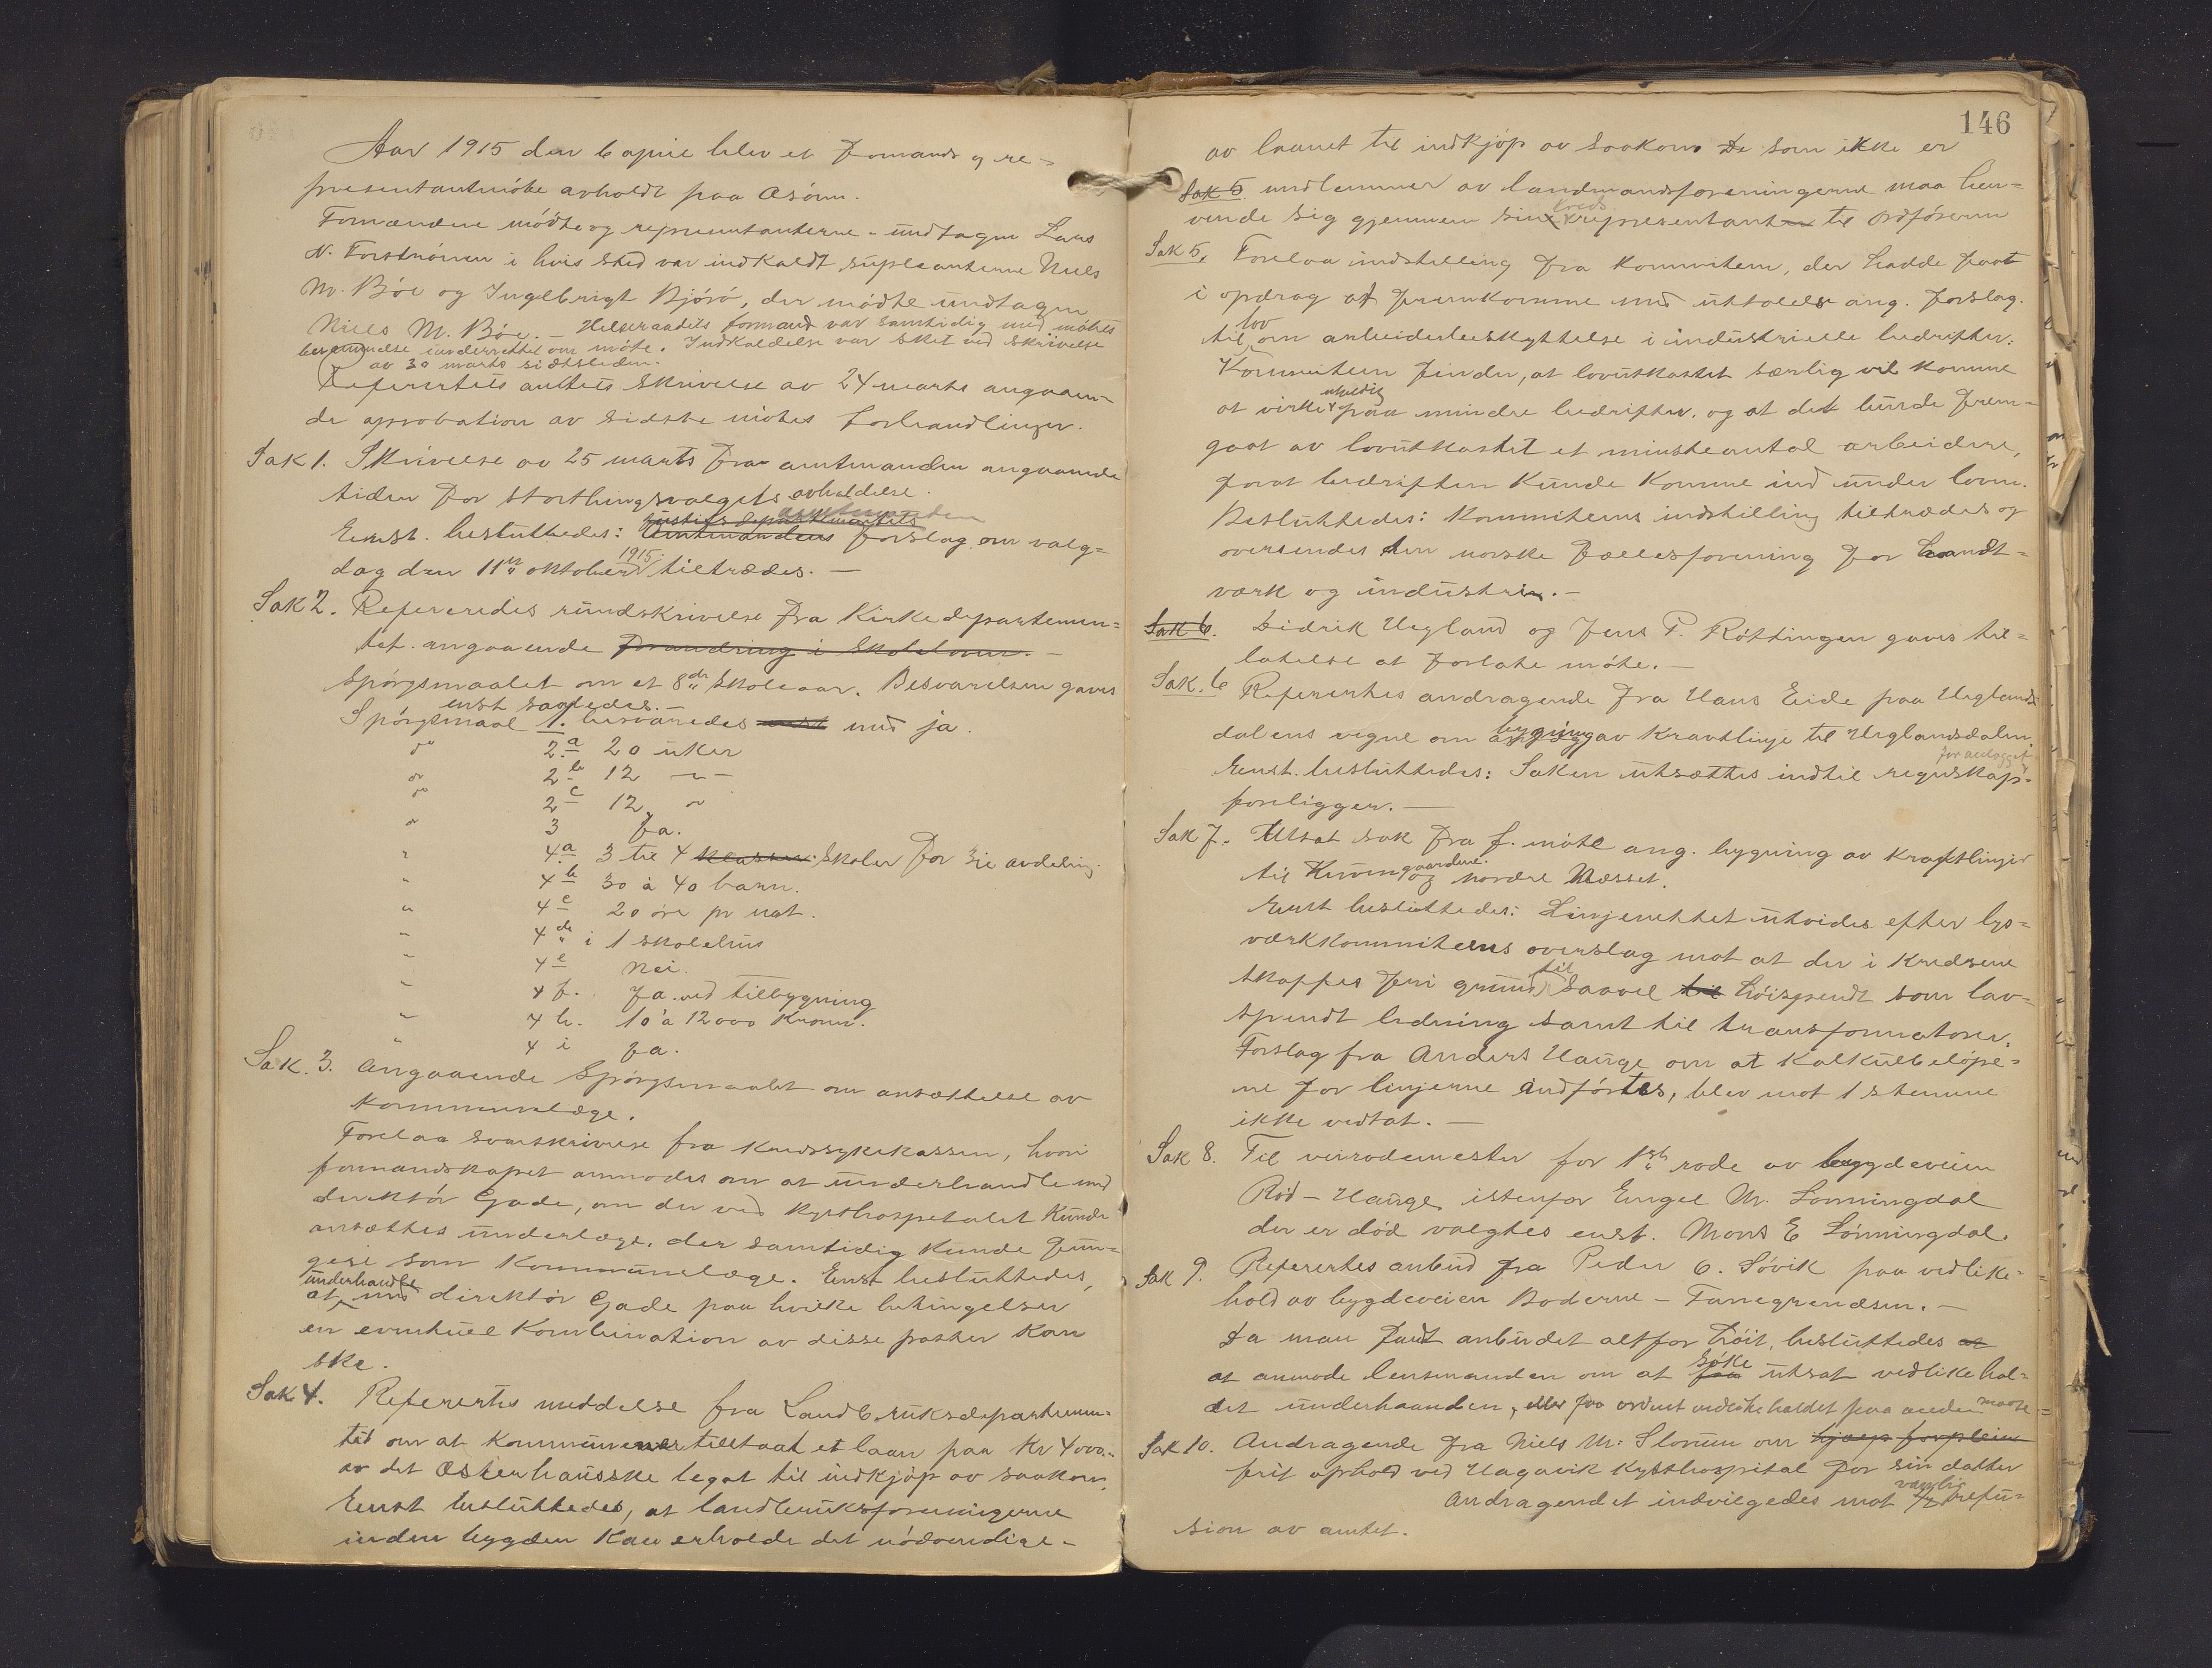 Aar 1915 den 6 april blev et formands og re-
presentantmöte avholdt paa Osören.
Formændene mödte og representanterne - undtagen Lars
N. Forströnen i hvis sted var indkaldt supleanterne Niels
M. Böe og Ingebrigt Bjösö, der mödte undtagen
Niels M. Böe. - Helseraadets formand var samtidig med mötets
berammelse underrettet om möte. Indkaldelse var sket ved skrivelse
av 30 marts sidstleden.
Refertes amtets skrivelse av 24 marts angaaen-
de aprobation av sidste mötes forhandlinger.
Sak 1. Skrivelse av 25 marts fra amtmanden angaaende
tiden for storthingsvalgets avholdelse.
Enst. besluttedes: Justits departmentets Amtmandens forslag om valg-
dag den 11te oktober 1915 tiltrædes. -
Sak 2. Refereredes rundskrivelse fra Kirkedepartemen-
tet angaaende forandring i skoleloven. -
Spörgsmaalet om et 8de skoleaar. Besvarelsen gaves
enst saaledes. -
Spörgsmaal 1. besvaredes enst med ja.
" 2a 20 uker
" 2b 12 - " -
" 2c 12 "
" 3 Ja.
" 4a 3 til 4 klasser skoler for 3die avdeling.
" 4b 30 à 40 barn.
" 4c 20 öre pr nat.
" 4d i 1 skolehus
" 4e Nei.
" 4 f. Ja. ved tilbygning
" 4 h. 10 à 12000 kroner.
" 4 i Ja.
Sak. 3. Angaaende spörgsmaalet om ansættelse av
kommunelæge.
Forelaa svarskrivelse fra kredssykekassen, hvori
formandskapet anmodes om at underhandle med
direktör Gade, om der ved kysthospitalet kunde
ansættes underlæge, der samtidig kunde fun-
gere som kommunelæge. Enst besluttedes,
at underhandle med direktör Gade paa hvilke betingelser
en eventuel kombination av disse poster kan
ske.
Sak 4. Refertes meddelse fra Landbruksdepartemen-
tet om at kommunen er tilstaat et laan paa Kr 4000.-
av det Østerhausske legat til indkjöp av saakorn.
Enst besluttedes, at landbruksforeningerne
inden bygden kan erholde det nödvendige -
146
av laanet til indkjöp av saakorn. De som ikke er
Sak 5 medlemmer av landmandsforeningerne maa hen-
vende sig gjennem sin kreds representanten til ordföreren
Sak 5. Forelaa indstilling fra komiteen, der hadde faat
i opdrag at fremkomme med uttalelse ang. forslag
til lov om arbeiderbeskyttelse i industrielle bedrifter.
Komiteen finder, at lovutkastet særlig vil komme
at virke uheldig paa mindre bedrifter, og at det burde frem-
gaat av lovutkastet et minsteantal arbeidere,
forat bedriften kunde komme ind under loven.
Besluttedes: Kommiteens indstilling tiltrædes og
oversendes den norske fællesforening for haandt-
verk og industrien. -
Sak 6. Didrik Hegland og Jens P. Röttingen gaves til-
latelse at forlate möte. -
Sak. 6 Refertes andragende fra Hans Eide paa Heglands-
dalens vegne om bygning av kravtlinje til Heglandsdalen.
Enst. besluttedes: Saken utsættes indtil regnskap for anlægget
foreligger. -
Sak 7. Utsat sak fra f. möte ang. bygning av kraftlinjer
til Kuven gaardene. og nordre Næsset.
Enst besluttedes: Linjenettet utvides efter lys-
verkkommiteens overslag mot at der i kredsene
skaffes fri grund til saavel til höispendt som lav-
spendt ledning samt til transformatorer.
Forslag fra Anders Hauge om at kalkulbelöpe-
ne for linjerne indförtes, blev mot 1 stemme
ikke vedtat. -
Sak 8. Til veirodemester for 1ste rode av bygdeveien
Röd - Hauge istenfor Engel M. Lönningdal
der er död valgtes enst. Mons E Lönningdal.
Sak 9. Refertes anbud fra Peder O. Sövik paa vedlike-
hold av bygdeveien Boderne - Fanegrændsen. -
Da man fandt anbudet altfor höit, besluttedes at
at anmode lensmanden om at faa söke utsat vedlikehol-
det underhaanden, eller faa ordnet vedlikeholdet paa anden maate
Sak 10. Andragende fra Niels M. Slorum om hjælp forpleie
frit ophold ved Hagavik Kysthospital for sin datter
Andragendet indvilgedes mot 7/10 vanlig refu-
sion av amtet.